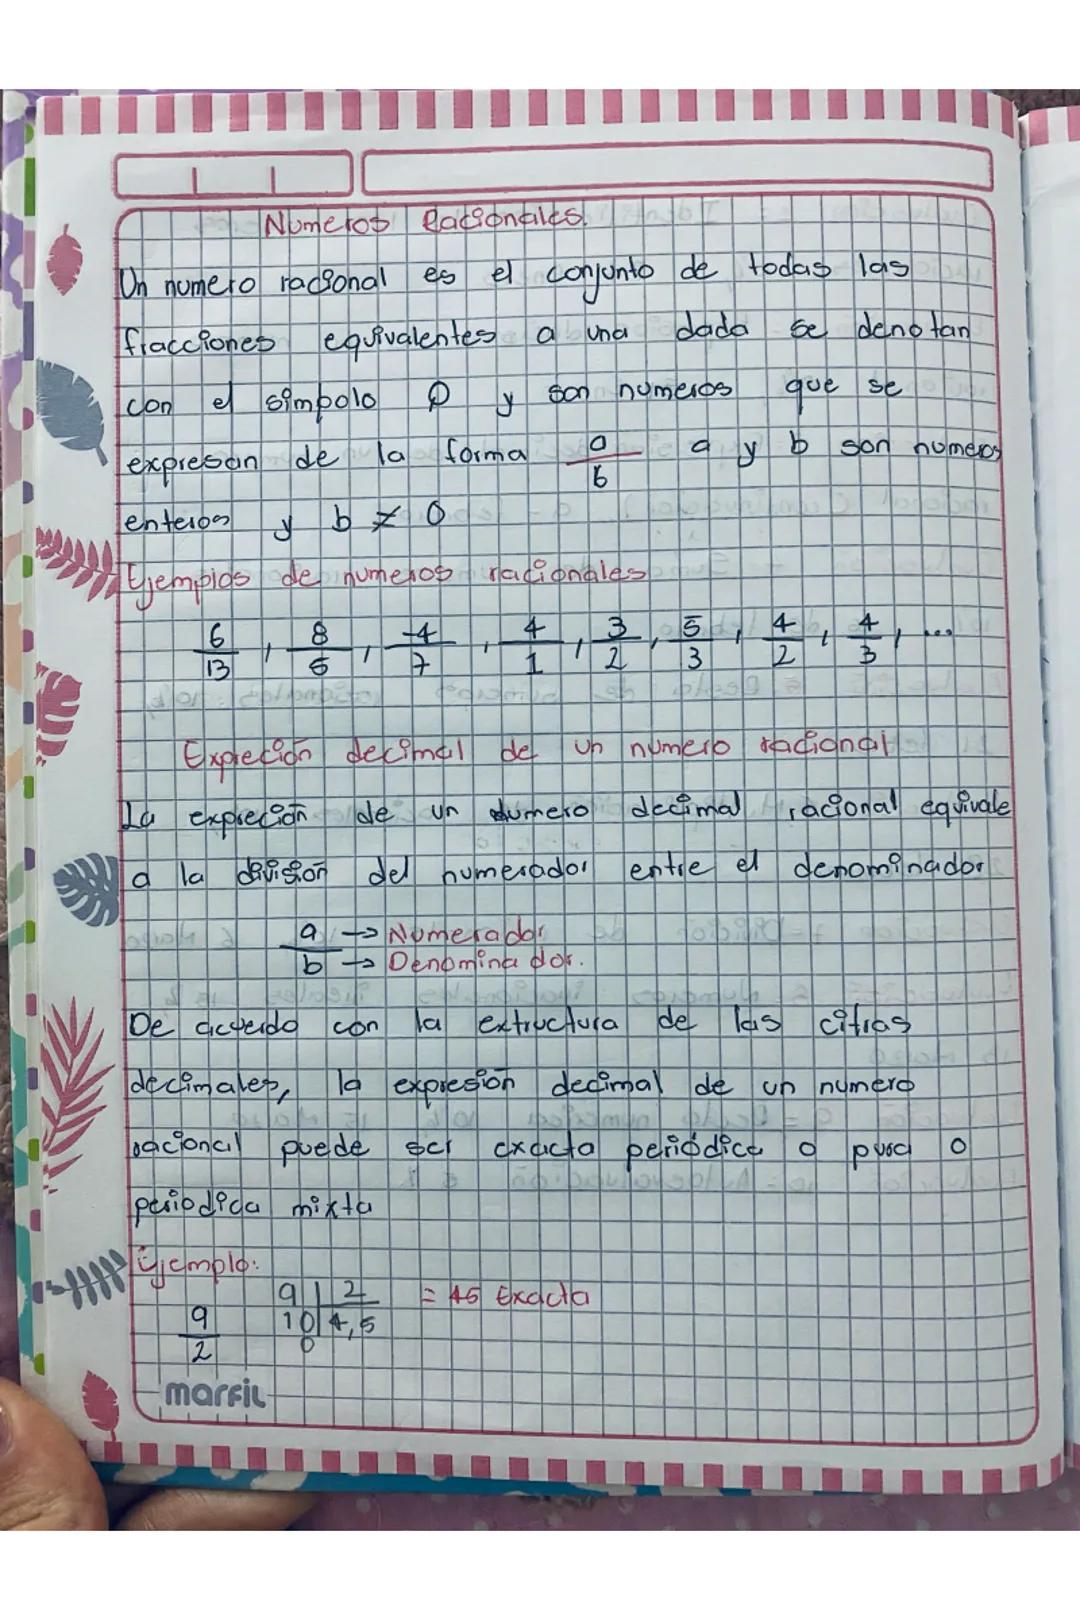 Numeros Racionales.
Un numero racional es el conjunto de todas las
fracciones equivalentes a una dada se denotan
con el simbolo Q y son numeros que se
expresan de la forma a/b a y b son numeros
enteros y b ≠ 0
Ejemplos de numeros racionales
6/13, 8/5, -4/7, 4/1, 3/2, 5/3, 4/2, 4/3, ...
Expreción decimal de un numero racional
La expreción de un numero decimal racional equivale
a la división del numerador entre el denominador
a → Numerador
b → Denominador.
De acuerdo con la extructura de las cifras
decimales, la expresión decimal de un numero
racional puede ser exacta periódica o pura o
periodica mixta
Ejemplo:
9/2
9 | 2 = 45 Exacta
10 | 4,5
0
marfil